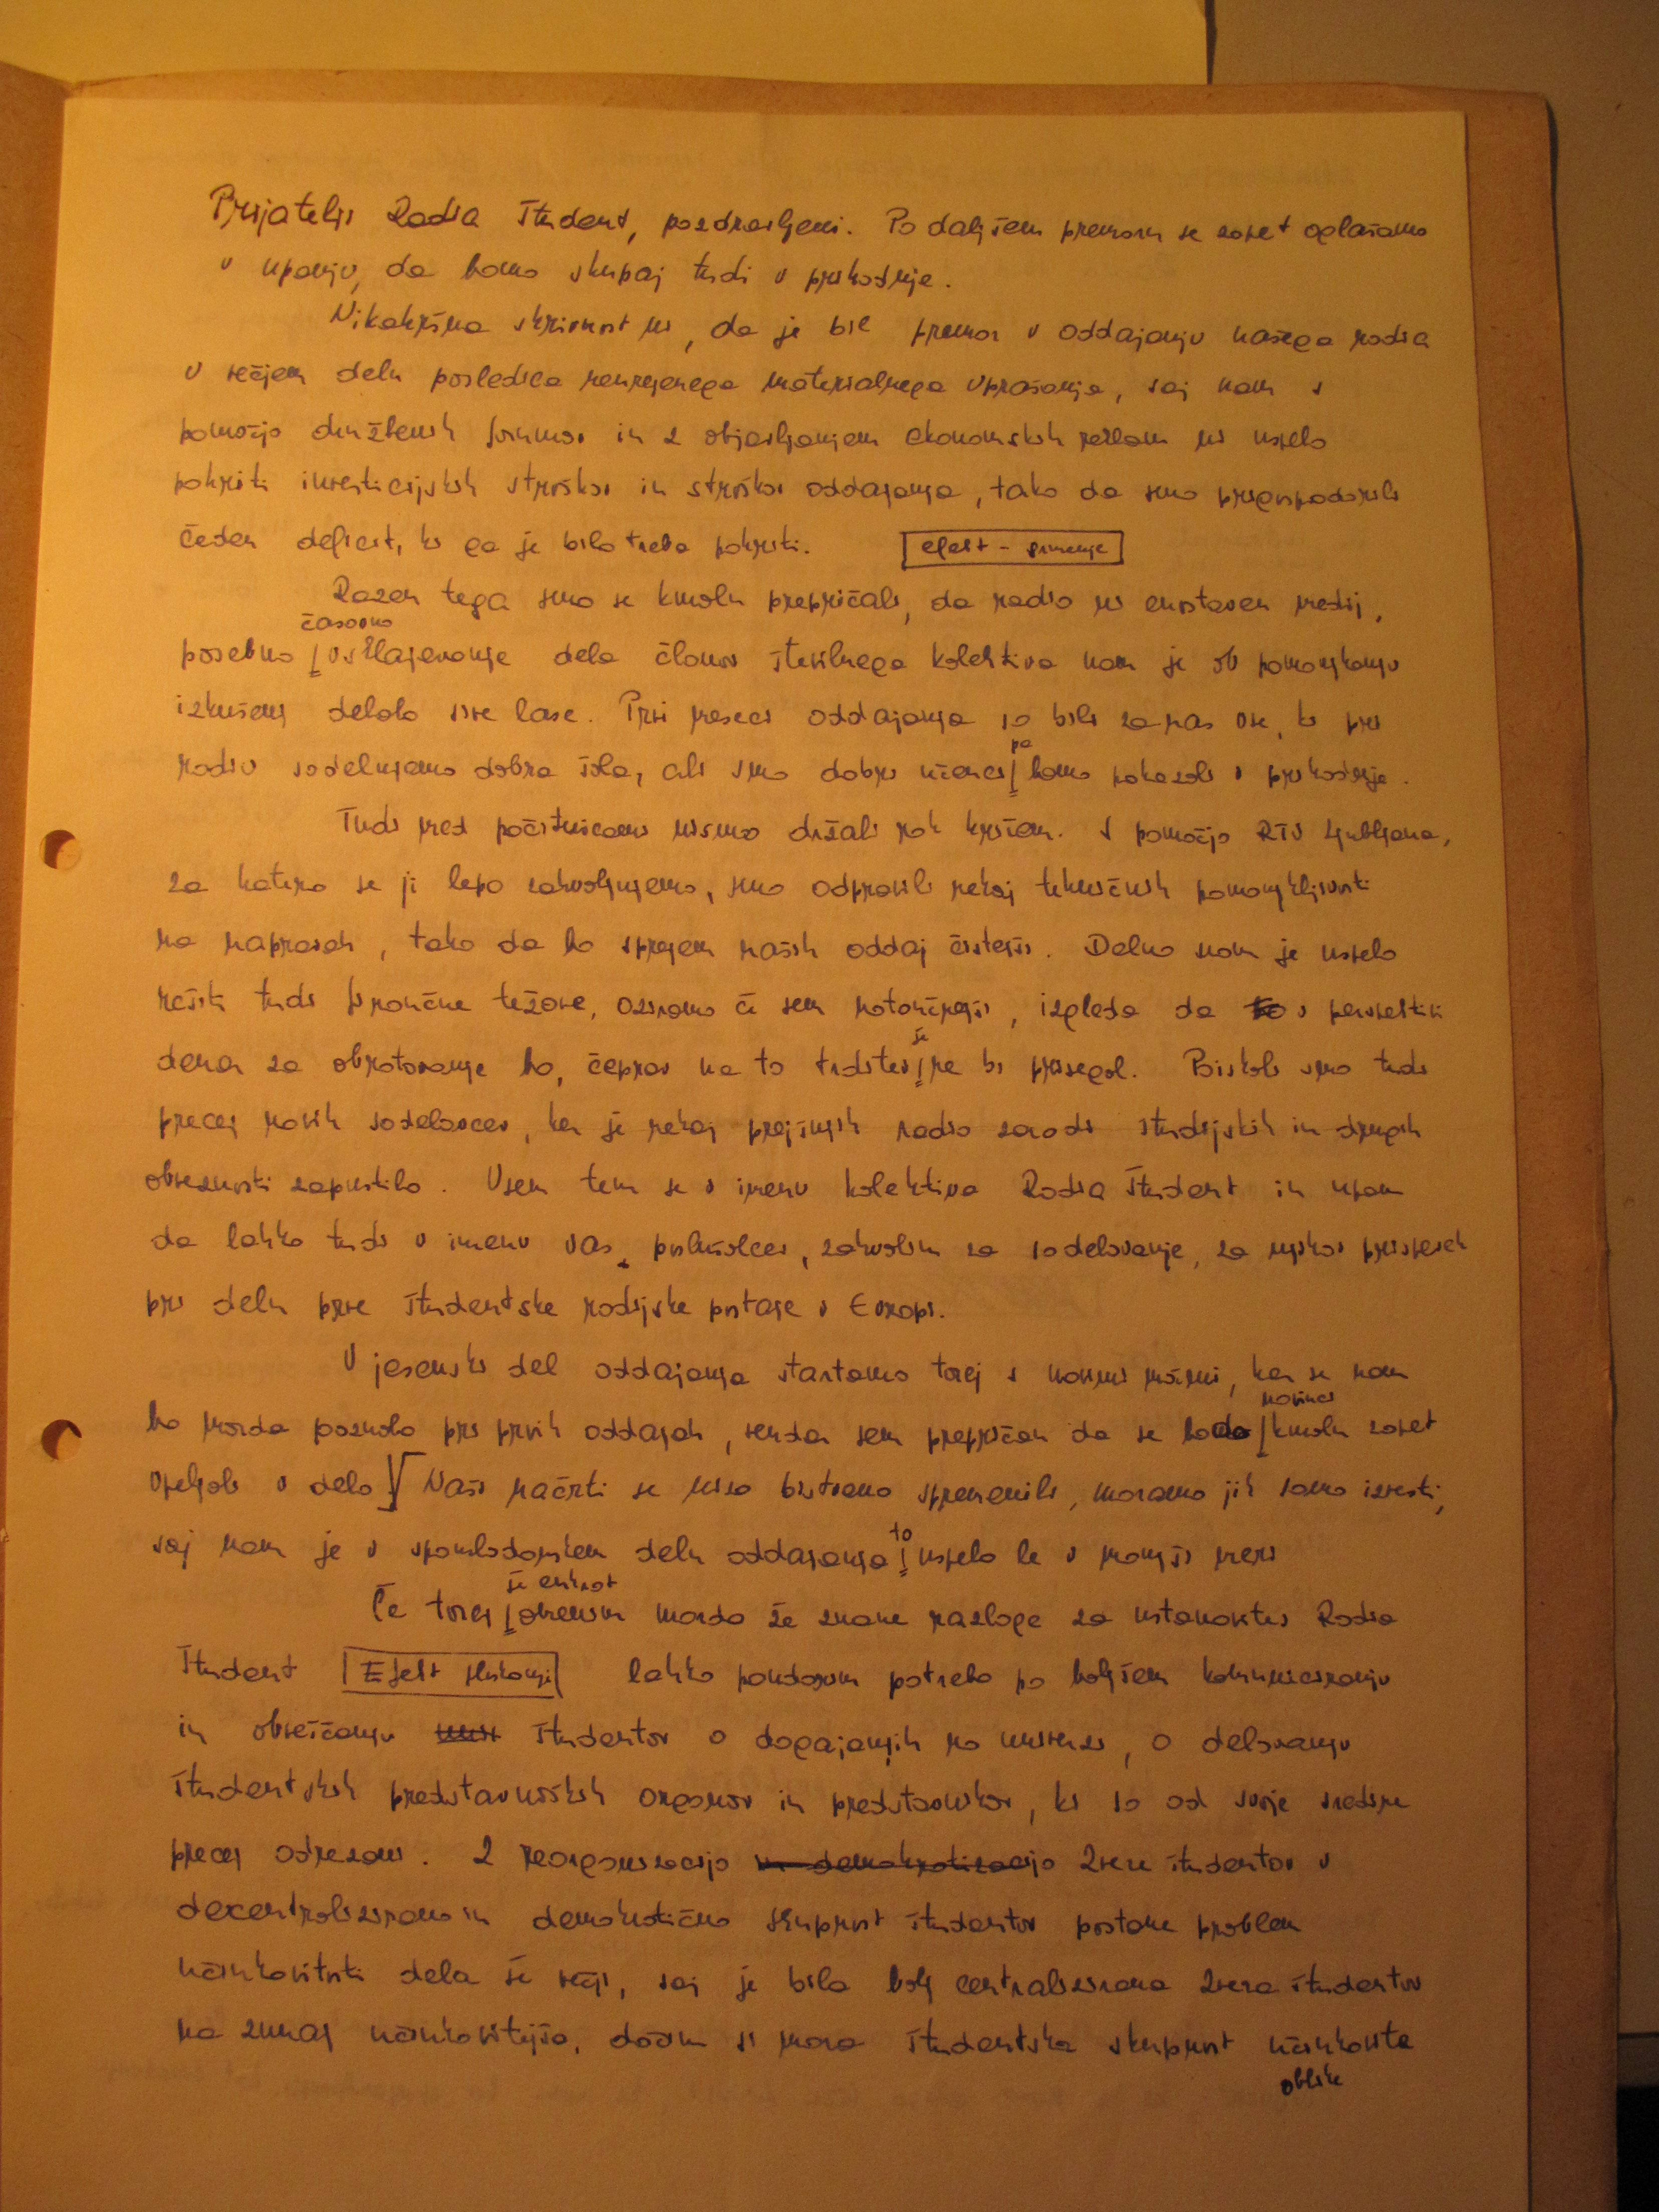 Prijatelji Radia Študent, pozdravljeni. Po daljšem premoru se zopet oglašamo
v upanju, da bomo skupaj tudi v prihodnje.
Nikakršna skrivnost ni, da je bil premor v oddajanju našega radia
v večjem delu posledica neurejenega materialnega vprašanja, saj nam s
pomočjo družbenih forumov in z objavljanjem ekonomskih reklam ni uspelo
pokriti investicijskih stroškov in stroškov oddajanja, tako da smo prigospodarili
čeden deficit, ki ga je bilo treba pokriti.
efekt -
Razen tega smo se kmalu prepričali, da radio ni enostaven medij,
časovno
posebno usklajevanje dela članov številnega kolektiva nam je ob pomanjkanju
izkušenj delalo sive lase. Prvi meseci oddajanja so bili za nas vse, ki pri
pa
radiu sodelujemo dobra šola, ali smo dobri učenci bomo pokazali v prihodnje.
Tudi med počitnicami nismo držali rok križem. S pomočjo RTV Ljubljana,
za katero se ji lepo zahvaljujemo, smo odpravili nekaj tehničnih pomanjkljivosti
na napravah, tako da bo sprejem naših oddaj čistejši. Delno nam je uspelo
rešiti tudi finančne težave, oziroma če sem natančnejši, izgleda da to v perspektivi
še
denar za obratovanje bo, čeprav na to trditev ne bi prisegel. Poiskali smo tudi
precej novih sodelavcev, ker je nekaj prejšnjih radio zaradi študijskih in drugih
obveznosti zapustilo. Vsem tem se v imenu kolektiva Radia Študent in upam
da lahko tudi v imenu vas, poslušalcev, zahvalim za sodelovanje, za njihov prispevek
pri delu prve študentske radijske postaje v Evropi.
V jesenski del oddajanja startamo torej s novimi močmi, kar se nam
novinci
bo morda poznalo pri prvih oddajah, vendar sem prepričan da se bodo kmalu zopet
vpeljali v delo Naši načrti se niso bistveno spremenili, moramo jih samo izvesti,
to
saj nam je v spomladanskem delu oddajanja uspelo le v manjši meri
še enkrat
Če torej omenim morda že znane razloge za ustanovitev Radia
Študent Efekt lahko poudarim potrebo po boljšem komuniciranju
in obveščanju študentov o dogajanjih na univerzi, o delovanju
študentskih predstavniških organov in predstavnikov, ki so od svoje sredine
precej odrezani. Z reorganizacijo in demokratizacijo Zveze študentov v
decentralizirano in demokratično skupnost študentov postane problem
učinkovitosti dela še večji, saj je bila bolj centralizirana Zveza študentov
na zunaj učinkovitejša, dočim si mora študentska skupnost učinkovite
oblike